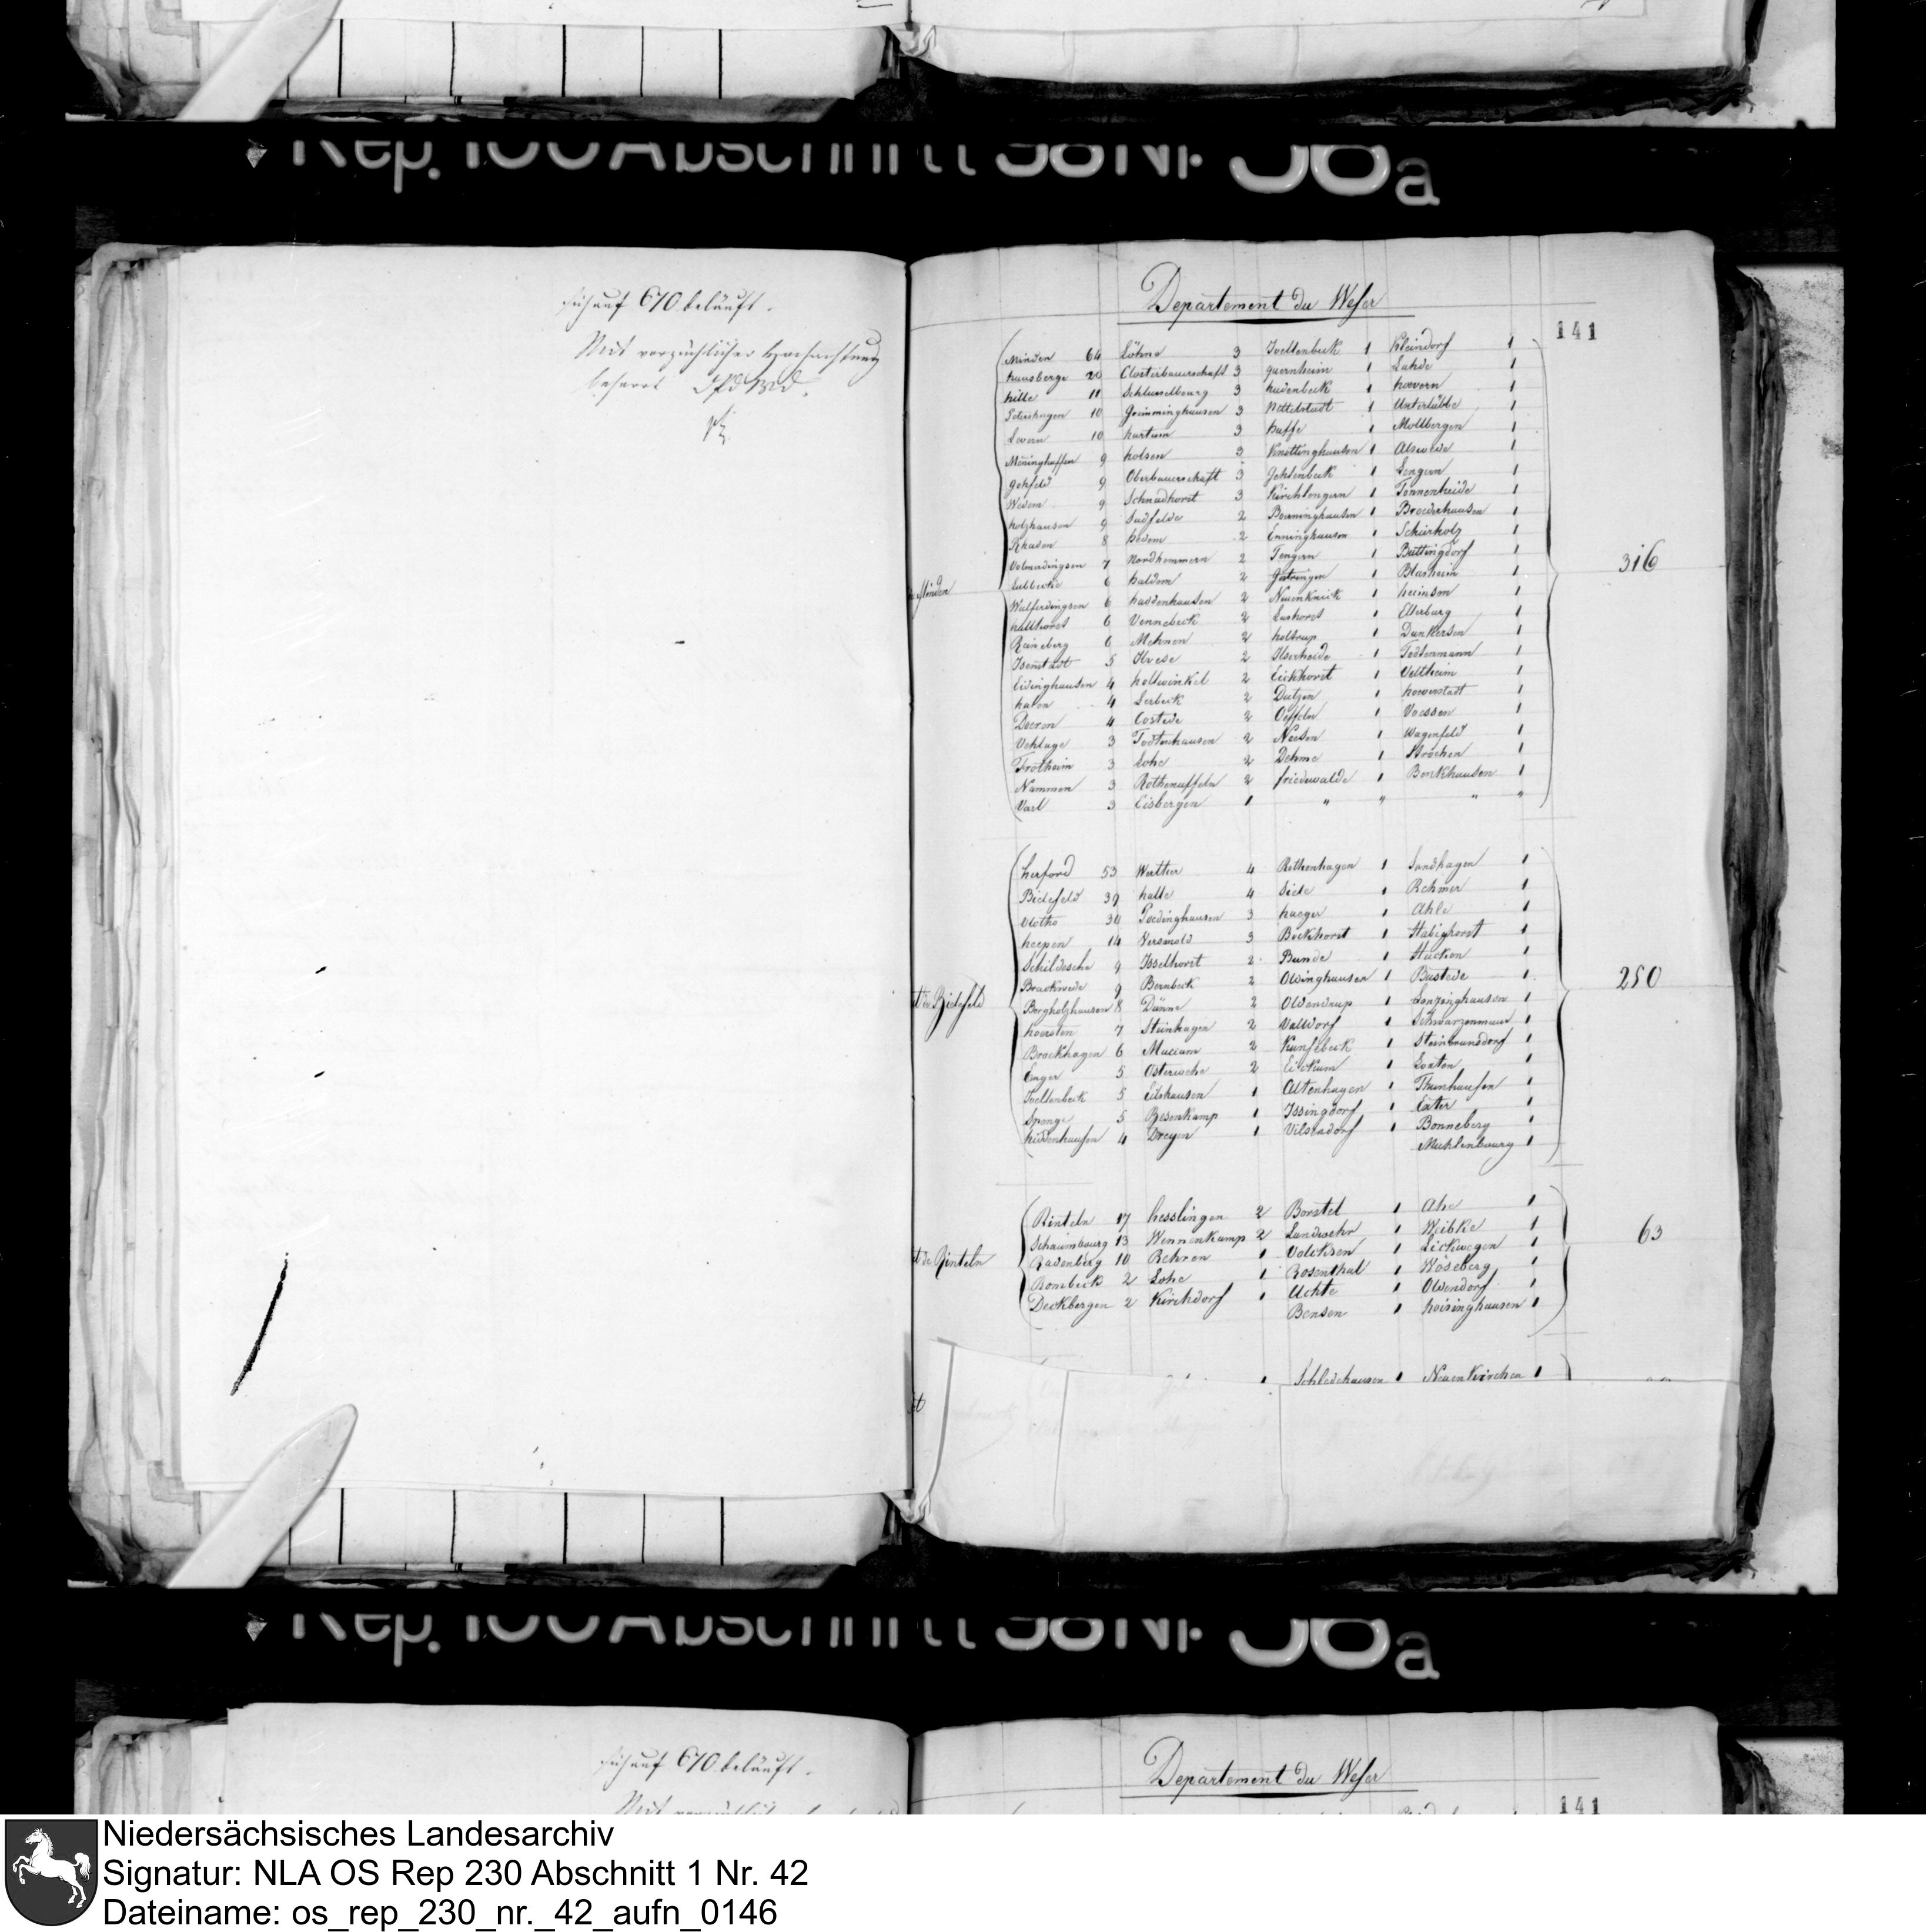 Rep. 100 Abschnitt 58 Nr. 36a
sich auf 670 beläuft.
Mit vorzüglicher Hochachtung
beharrt
Departement du Weser
141
Minden 64 Löhne 3 Iveltenbeck 1 Kleindorf 1
hausberge 20 Closterbauerschaft 3 quernheim 1 Lahde 1
hille 11 Schlusselbourg 3 hudenbeck 1 hoevern 1
Petershagen 10 Grimminghausen 3 Nettelstadt 1 Unterlübbe 1
Levern 10 hartum 3 haffe 1 Mollbergen 1
Menninghuffen 9 holsen 3 Knettinghausen 1 Alswede 1
gohfeld 9 Oberbauerschaft 3 Gehlenbeck 1 Lengern 1
Wedem 9 Schnadhorst 3 Kirchlengern 1 Tonnenheide 1
holzhausen 9 Sudfelde 2 Boerninghausen 1 Broderhausen 1
Rhaden 8 hedem 2 Enninghausen 1 Schierholz 1
Volmerdingsen 7 Nordhemmern 2 Tengern 1 Buttingdorf 1
Lubbecke 6 haldem 2 Gestringen 1 Blasheim 1
Wulferdingsen 6 haddenhausen 2 Neuenknick 1 heimsen 1
hallhorst 6 Vennebeck 2 Lashorst 1 Ellerburg 1
Rameberg 6 Mehnen 2 holtrup 1 Dankersen 1
Isenstadt 5 Ilvese 2 Ilserheide 1 Todtenmann 1
Eidinghausen 4 holtwinkel 2 Eickhorst 1 Veltheim 1
halen 4 Lerbeck 2 Dutzen 1 hoeverstadt 1
Decren 4 Costede 2 Oeffeln 1 Voessen 1
Vehlage 3 Todtenhausen 2 Neesen 1 Wagenfeld 1
Frotheim 3 Lohe 2 Dehme 1 Ströhen 1
Nammen 3 Rothenuffeln 2 friedewalde 1 Benkhausen 1
Varl 3 Eisbergen 1 " " " "
de Minden
316
herford 53 Werther 4 Rothenhagen 1 Sandhagen 1
Bielefeld 39 halle 4 Siele 1 Rehmer 1
Vlotho 30 Poedinghausen 3 haeger 1 Ahle 1
heepen 14 Versmold 3 Bockhorst 1 Habighorst 1
Schildesche 9 Isselhorst 2 Bunde 1 Hücken 1
Brackwede 9 Bernbeck 2 Oldinghausen 1 Bustede 1
Borgholzhausen 8 Dünne 2 Oldendrup 1 Lenzinghausen 1
hoersten 7 Steinhagen 2 Valldorf 1 Schwarzenmuur 1
Brockhagen 6 Mucium 2 Kunsebeck 1 Steinbrundorf 1
Enger 5 Osterwehe 2 Eickum 1 Loxten 1
Iveltenbeck 5 Eilshausen 1 Altenhagen 1 Thenhausen 1
Spenge 5 Besenkamp 1 Issingdorf 1 Exter 1
hiddenhausen 4 Dreyen 1 Vilsendorf 1 Bonneberg
Muhlenbourg 1
t de Bielefeld
250
Rinteln 17 hesslingen 2 Borstel 1 Ahe 1
Schaumbourg 13 Wennenkamp 2 Landwehr 1 Weibke 1
Radenberg 10 Rehren 1 Volcksen 1 Lieckwegen 1
Rombeck 2 Lohe 1 Rosenthal 1 Wöseberg 1
Deckbergen 2 Kirchdorf 1 Uchte 1 Oldendorf 1
Bensen 1 hoisinghausen 1
t de Rinteln
63
1 Schledehausen 1 Neuenkirchen 1
Rep. 100 Abschnitt 58 Nr. 36a
sich auf 670 beläuft.
Departement du Weser
141
Niedersächsisches Landesarchiv
Signatur: NLA OS Rep 230 Abschnitt 1 Nr. 42
Dateiname: os_rep_230_nr._42_aufn_0146